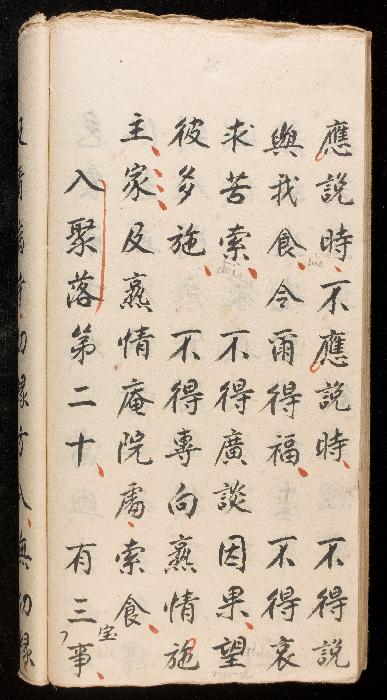 應說時、不應說時、不得說
與我食、令爾得福、不得哀
求苦索、不得廣談因果、望
彼多施、不得專向熟情施
主家、及熟情庵院處索食、
入聚落第二十、有三事、